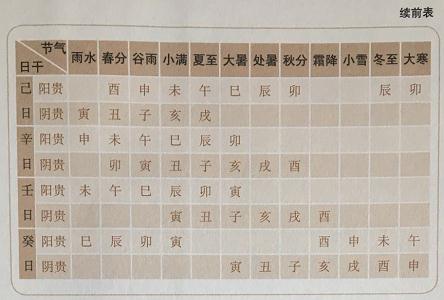 续前表
节气 雨水 春分 谷雨 小满 夏至 大暑 处暑 秋分 霜降 小雪 冬至 大寒
日干
己 阳贵 酉 申 未 午 巳 辰 卯 辰 卯
日 阴贵 寅 丑 子 亥 戌
辛 阳贵 申 未 午 巳 辰 卯
日 阴贵 卯 寅 丑 子 亥 戌 酉
壬 阳贵 未 午 巳 辰 卯 寅
日 阴贵 寅 丑 子 亥 戌 酉
癸 阳贵 巳 辰 卯 寅 酉 申 未 午
日 阴贵 寅 丑 子 亥 戌 酉 申